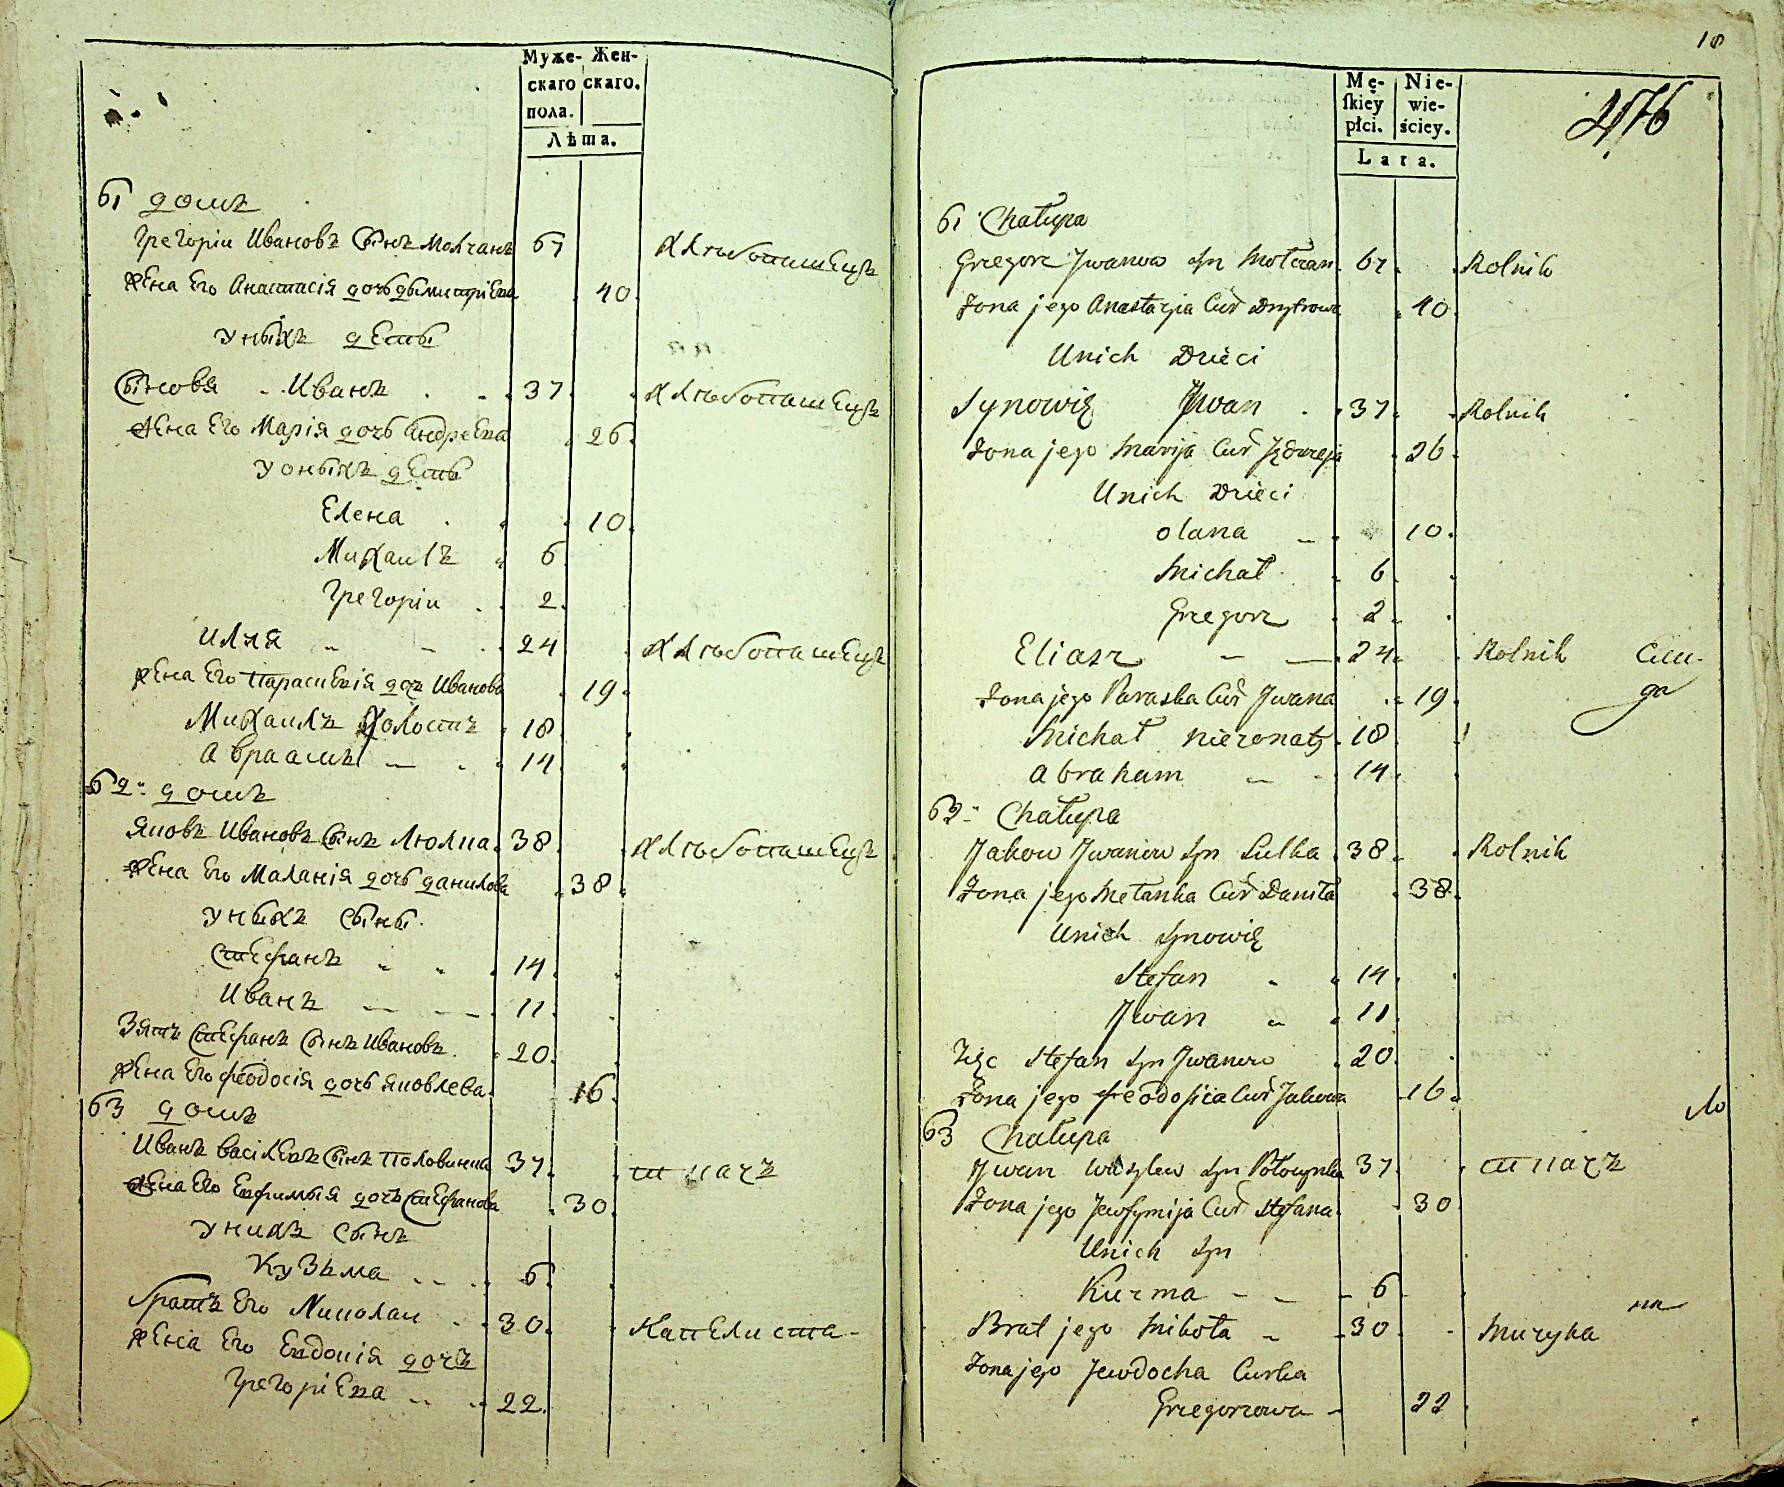 Муже- Жен-
скаго скаго.
пола.
Лѣта.
61 домъ
Григоріи Ивановъ сынъ Молчанъ 61 хлѣбопашецъ
жена его Анастасія дочь дымитріева 40
у ныхъ деты
сыновя Иванъ 37 хлѣбопашецъ
жена его Марія дочь Андреева 26
у оныхъ деты
Елена 10
Михаилъ 6
Григоріи 2
Илия 24 хлѣбопашецъ
жена его Параскевія дочъ Иванова 19
Михаилъ холостъ 18
Авраамъ 14
62 домъ
Яковъ Ивановъ сынъ Люлка 38 хлѣбопашецъ
жена его Маланія дочь данилова 38
у ныхъ сыны
Стефанъ 14
Иванъ 11
Зять Стефанъ сынъ Ивановъ 20
жена его феодосія дочь яковлева 16
63 домъ
Иванъ василевъ сынъ Половинка 37 ткачъ
жена его Евфимыя дочъ стефанова 30
у нихъ сынъ
Кузьма 6
братъ его Николаи 30 Капелиста
жена его Евдокія дочъ
Григоріева 22
18
Mę- Nie-
skiey wie-
płci. ściey.
Lata.
476
61 Chałupa
Grzegorz Jwanow syn Mołczan 61 Rolnik
Żona jego Anastazia Cur Dmytrowa 40
U nich Dzieci
Synowie Jwan 37 Rolnik
Żona jego Marija Cur Jędrzeja 26
U nich Dzieci
olana 10
Michał 6
Grzegorz 2
Eliasz 24 Rolnik
Żona jego Paraska Cur Jwana 19
Michał nieżonaty 18
Abraham 14
62 Chałupa
Jakow Jwanow syn Lulka 38 Rolnik
Żona jego Mełanka Cur Daniła 38
U nich synowie
Stefan 14
Jwan 11
Zięc Stefan syn Jwanow 20
Żona jego feodosia Cur Jakowa 16
63 Chałupa
Jwan Wasylew syn Połowynka 37 ткачъ
Żona jego Jewfymija Cur Stefana 30
U nich syn
Kuzma 6
Brat jego Mikoła 30 Muzyka
Żona jego Jewdocha Curka
Grzegorzowa 22